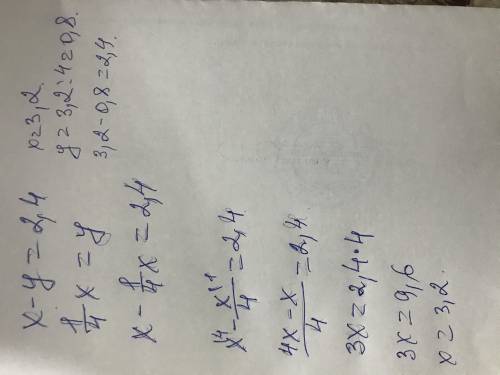 x - y = 2,4
1/4 x = y
x - 1/4 x = 2,4
x^{\4} - x^{\1}/4 = 2,4
4x - x/4 = 2,4
3x = 2,4 · 4
3x = 9,6
x = 3,2
x = 3,2.
y = 3,2 : 4 = 0,8.
3,2 - 0,8 = 2,4.